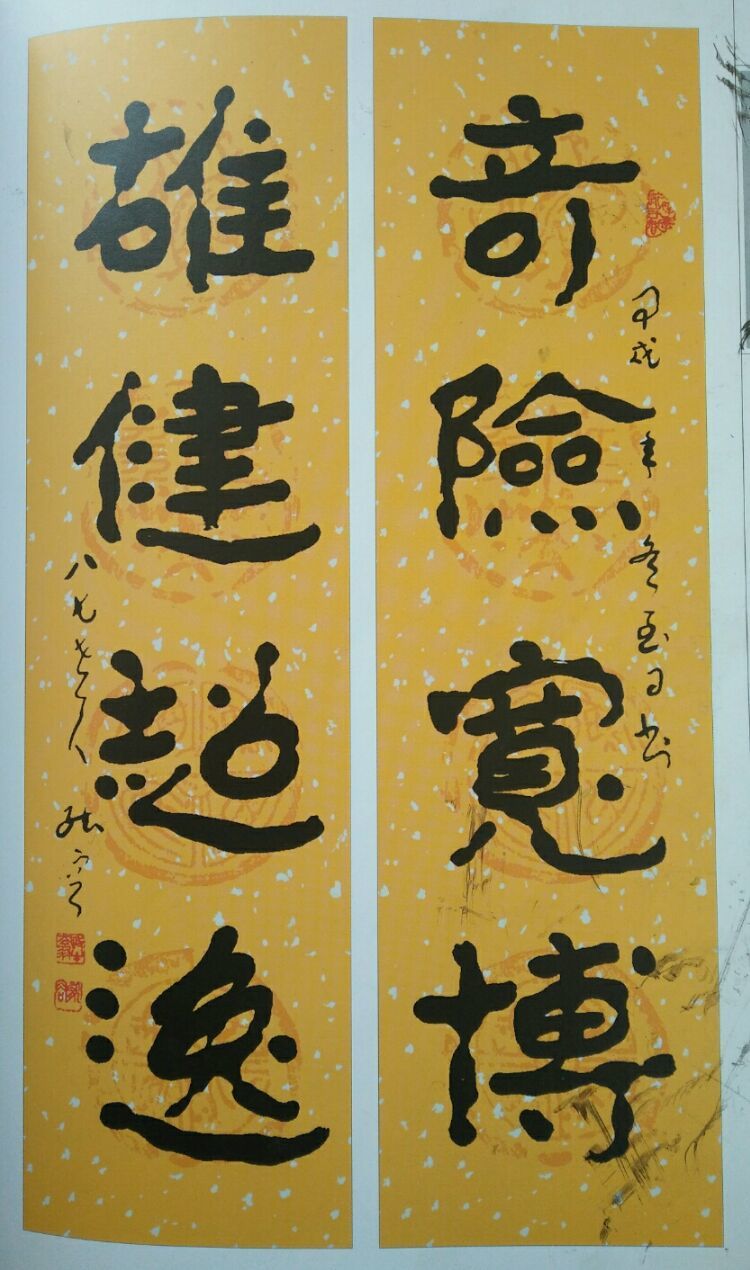 竒險寬博
甲戌年冬至日书
雄健超逸
八七老人